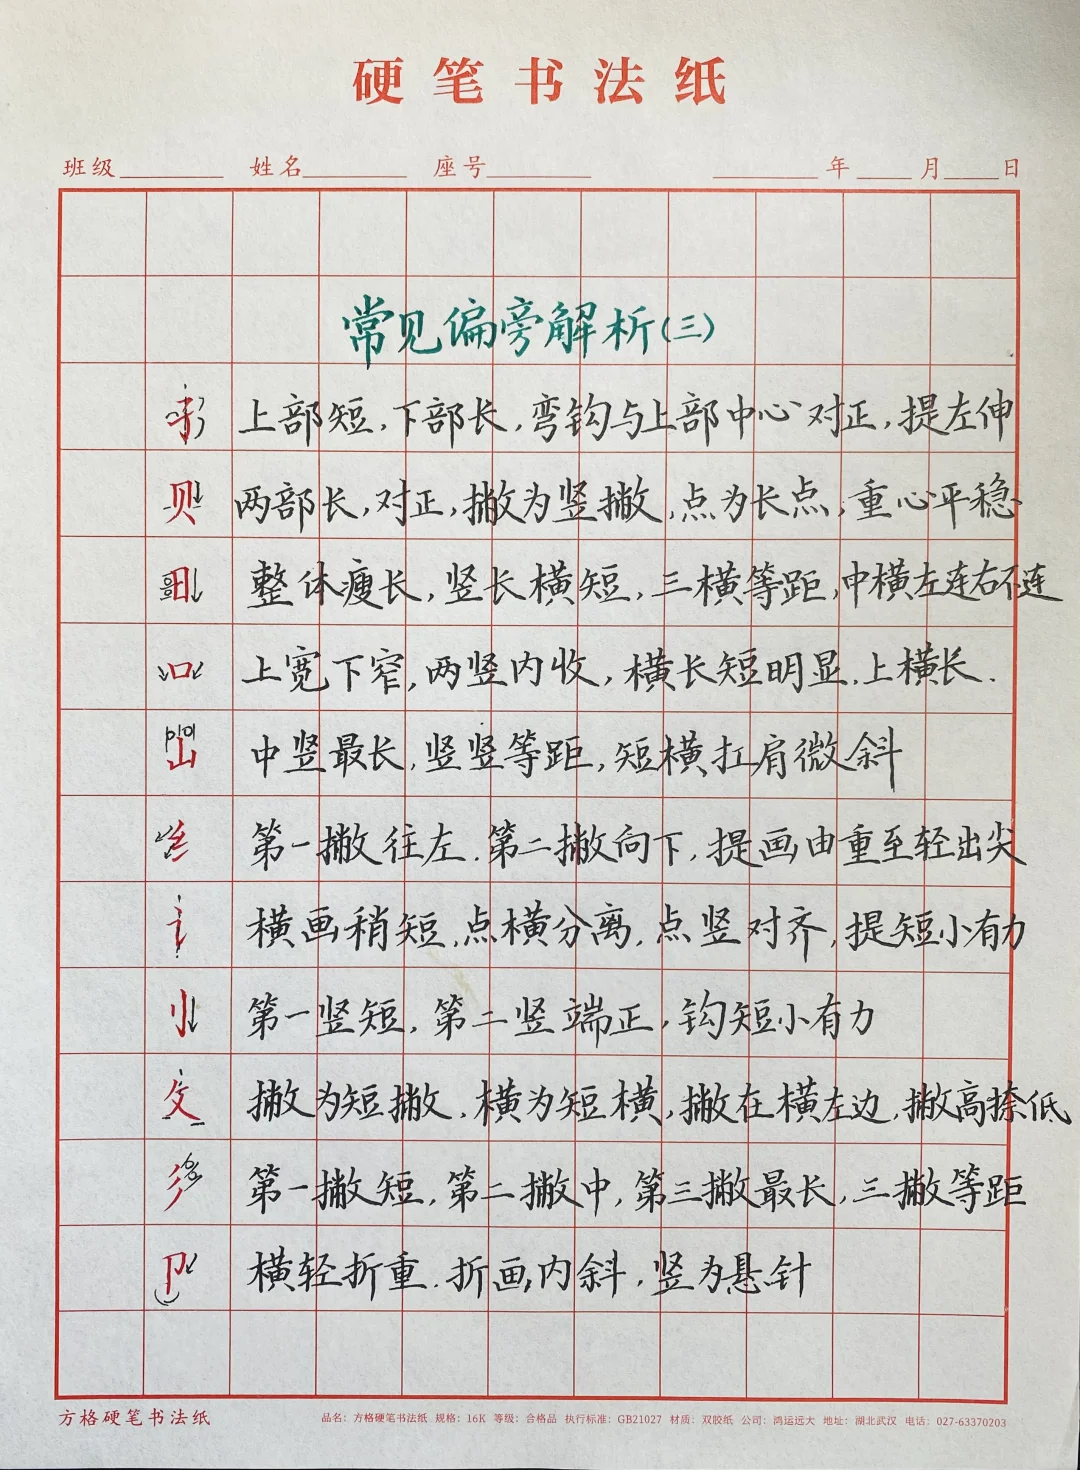 硬笔书法纸
班级 姓名 座号 年 月 日
常见偏旁解析(三)
上部短,下部长,弯钩与上部中心对正,提左伸
贝 两部长,对正,撇为竖撇,点为长点,重心平稳
日 整体瘦长,竖长横短,三横等距,中横左连右不连
口 上宽下窄,两竖内收,横长短明显.上横长.
山 中竖最长,竖竖等距,短横扛肩微斜
纟 第一撇往左.第二撇向下,提画由重至轻出尖
讠 横画稍短,点横分离,点竖对齐,提短小有力
刂 第一竖短,第二竖端正,钩短小有力
攵 撇为短撇,横为短横,撇在横左边,撇高捺低
彡 第一撇短,第二撇中,第三撇最长,三撇等距
卩 横轻折重.折画内斜,竖为悬针
方格硬笔书法纸 品名：方格硬笔书法纸 规格：16K 等级：合格品 执行标准：GB21027 材质：双胶纸 公司：鸿运远大 地址：湖北武汉 电话：027-63370203